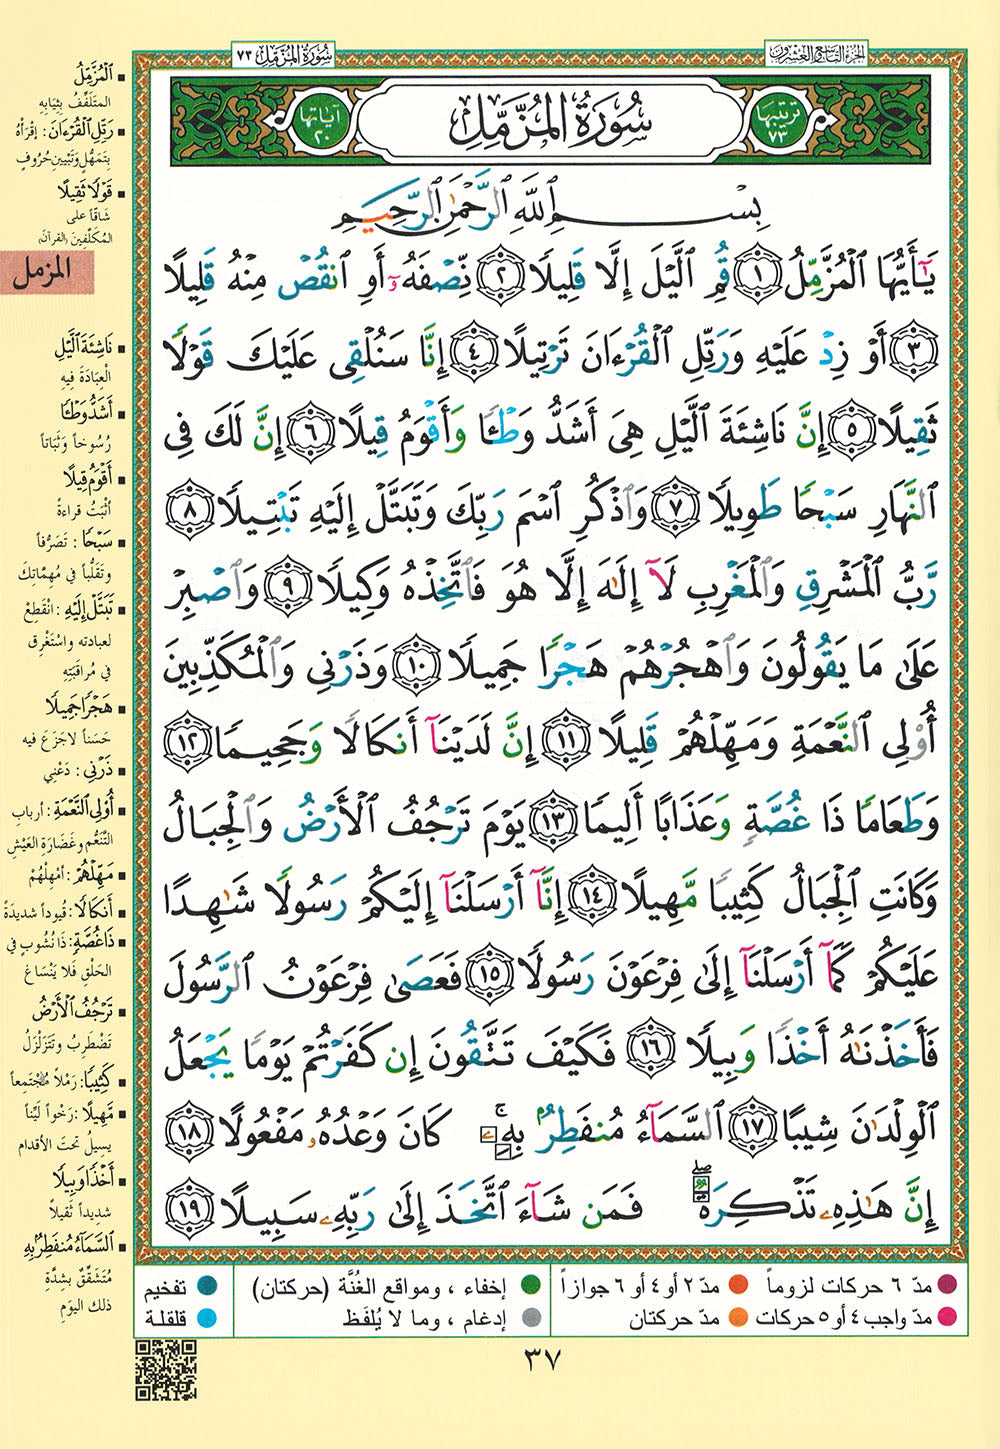 الجزء التاسع والعشرون
سُورَةُ المُزَّمِّل ٧٣
ترتيبها ٧٣
سُورَةُ المُزَّمِّلِ
آياتها ٢٠
بِسْمِ ٱللَّهِ ٱلرَّحْمَٰنِ ٱلرَّحِيمِ
يَٰٓأَيُّهَا ٱلْمُزَّمِّلُ ١ قُمِ ٱلَّيْلَ إِلَّا قَلِيلًا ٢ نِّصْفَهُۥٓ أَوِ ٱنقُصْ مِنْهُ قَلِيلًا
٣ أَوْ زِدْ عَلَيْهِ وَرَتِّلِ ٱلْقُرْءَانَ تَرْتِيلًا ٤ إِنَّا سَنُلْقِى عَلَيْكَ قَوْلًا
ثَقِيلًا ٥ إِنَّ نَاشِئَةَ ٱلَّيْلِ هِىَ أَشَدُّ وَطْـًٔا وَأَقْوَمُ قِيلًا ٦ إِنَّ لَكَ فِى
ٱلنَّهَارِ سَبْحًا طَوِيلًا ٧ وَٱذْكُرِ ٱسْمَ رَبِّكَ وَتَبَتَّلْ إِلَيْهِ تَبْتِيلًا ٨
رَّبُّ ٱلْمَشْرِقِ وَٱلْمَغْرِبِ لَآ إِلَٰهَ إِلَّا هُوَ فَٱتَّخِذْهُ وَكِيلًا ٩ وَٱصْبِرْ
عَلَىٰ مَا يَقُولُونَ وَٱهْجُرْهُمْ هَجْرًا جَمِيلًا ١٠ وَذَرْنِى وَٱلْمُكَذِّبِينَ
أُو۟لِى ٱلنَّعْمَةِ وَمَهِّلْهُمْ قَلِيلًا ١١ إِنَّ لَدَيْنَآ أَنكَالًا وَجَحِيمًا ١٢
وَطَعَامًا ذَا غُصَّةٍ وَعَذَابًا أَلِيمًا ١٣ يَوْمَ تَرْجُفُ ٱلْأَرْضُ وَٱلْجِبَالُ
وَكَانَتِ ٱلْجِبَالُ كَثِيبًا مَّهِيلًا ١٤ إِنَّآ أَرْسَلْنَآ إِلَيْكُمْ رَسُولًا شَٰهِدًا
عَلَيْكُمْ كَمَآ أَرْسَلْنَآ إِلَىٰ فِرْعَوْنَ رَسُولًا ١٥ فَعَصَىٰ فِرْعَوْنُ ٱلرَّسُولَ
فَأَخَذْنَٰهُ أَخْذًا وَبِيلًا ١٦ فَكَيْفَ تَتَّقُونَ إِن كَفَرْتُمْ يَوْمًا يَجْعَلُ
ٱلْوِلْدَٰنَ شِيبًا ١٧ ٱلسَّمَآءُ مُنفَطِرٌۢ بِهِۦ ۚ كَانَ وَعْدُهُۥ مَفْعُولًا ١٨
إِنَّ هَٰذِهِۦ تَذْكِرَةٌ ۖ فَمَن شَآءَ ٱتَّخَذَ إِلَىٰ رَبِّهِۦ سَبِيلًا ١٩
ٱلْمُزَّمِّلُ
المتَلَفِّفُ بِثيَابِهِ
رَتِّلِ ٱلْقُرْءَانَ : اقْرَأْهُ
بِتَمَهُّلٍ وَتَبْيينِ حُرُوفٍ
قَوْلًا ثَقِيلًا
شَاقّاً على
المُكَلَّفِينَ (القرآن)
المزمل
نَاشِئَةَ ٱلَّيْلِ
الْعِبَادَةَ فِيهِ
أَشَدُّ وَطْـًٔا
رُسُوخاً وَثَبَاتاً
أَقْوَمُ قِيلًا
أثْبَتُ قراءةً
سَبْحًا : تَصَرُّفاً
وتَقَلُّباً في مُهِمَّاتِكَ
تَبَتَّلْ إِلَيْهِ : انْقَطِعْ
لعبادته واسْتَغْرِق
في مُراقَبَتِهِ
هَجْرًا جَمِيلًا
حَسَناً لاجَزَعَ فيه
ذَرْنِى : دَعْنِي
أُو۟لِى ٱلنَّعْمَةِ : أرباب
التَّنَعُّم وغَضَارَةِ العَيْشِ
مَهِّلْهُمْ : أمْهِلْهُمْ
أَنكَالًا : قُيوداً شديدَةً
ذَا غُصَّةٍ : ذَا نُشُوبٍ في
الحَلْقِ فَلا يَنْسَاغ
تَرْجُفُ ٱلْأَرْضُ
تَضْطَرِبُ وتَتَزَلْزَلُ
كَثِيبًا : رَمْلاً مُجْتَمِعاً
مَّهِيلًا : رَخْواً لَيِّناً
يسِيلُ تحتَ الأقدام
أَخْذًا وَبِيلًا
شديداً ثَقيلاً
ٱلسَّمَآءُ مُنفَطِرٌۢ بِهِ
مُتَشَقِّقٌ بِشِدَّةِ
ذلك اليومِ
مدّ ٦ حركات لزوماً
مدّ ٢ أو ٤ أو ٦ جوازاً
إخفاء ، ومواقع الغُنَّة (حركتان)
تفخيم
مدّ واجب ٤ أو ٥ حركات
مدّ حركتان
إدغام ، وما لا يُلفَظ
قلقلة
٣٧